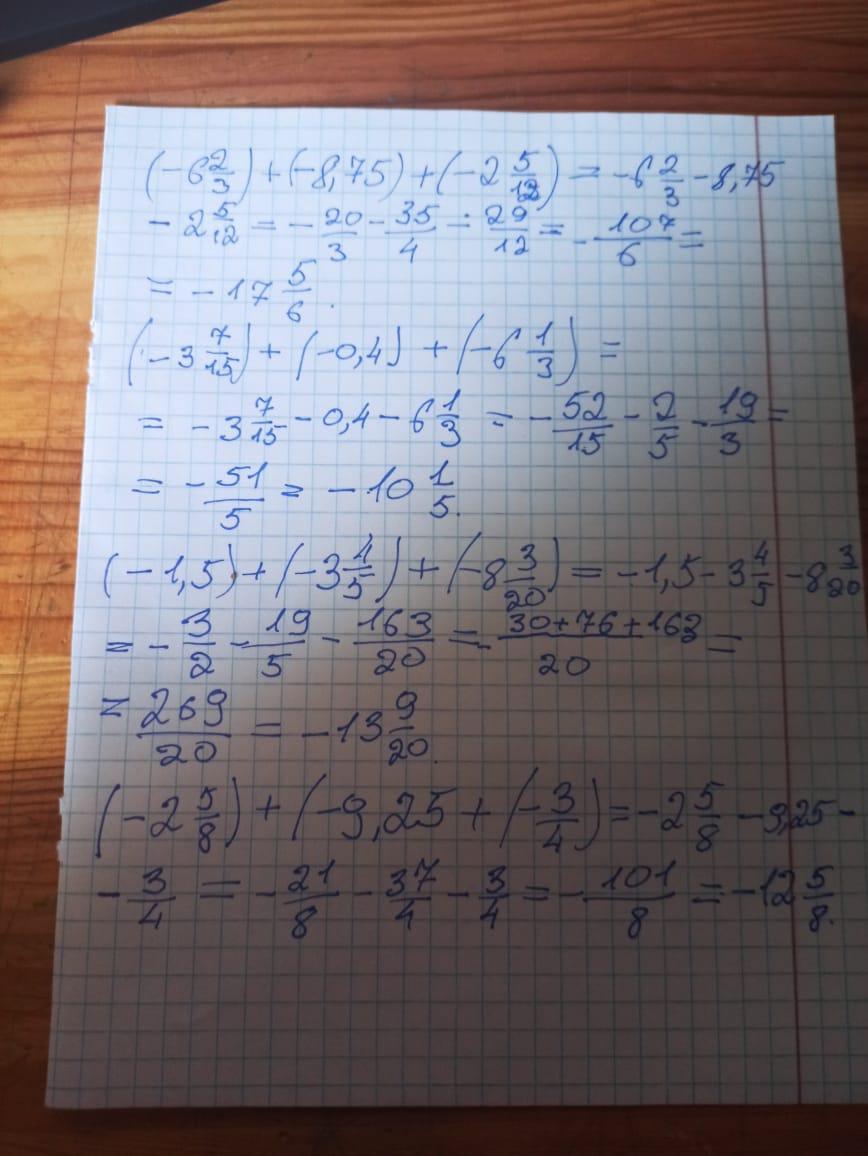 (-6 2/3) + (-8,75) + (-2 5/12) = -6 2/3 - 8,75
- 2 5/12 = - 20/3 - 35/4 - 29/12 = - 107/6 =
= - 17 5/6.
(-3 7/15) + (-0,4) + (-6 1/3) =
= - 3 7/15 - 0,4 - 6 1/3 = - 52/15 - 2/5 - 19/3 =
= - 51/5 = - 10 1/5.
(-1,5) + (-3 4/5) + (-8 3/20) = -1,5 - 3 4/5 - 8 3/20
= - 3/2 - 19/5 - 163/20 = - 30+76+163/20 =
= 269/20 = - 13 9/20.
(-2 5/8) + (-9,25 + (-3/4) = -2 5/8 - 9,25 -
- 3/4 = - 21/8 - 37/4 - 3/4 = - 101/8 = -12 5/8.